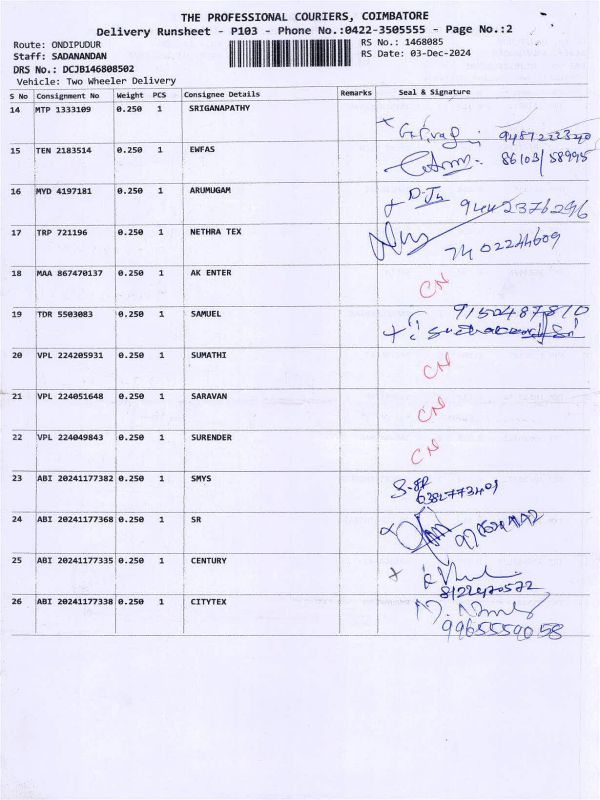 THE PROFESSIONAL COURIERS, COIMBATORE
Delivery Runsheet - P103 - Phone No.:0422-3505555 - Page No.:2
Route: ONDIPUDUR
RS No.: 1468085
Staff: SADANANDAN
RS Date: 03-Dec-2024
DRS No.: DCJB146808502
Vehicle: Two Wheeler Delivery
S No Consignment No Weight PCS Consignee Details Remarks Seal & Signature
14 MTP 1333109 0.250 1 SRIGANAPATHY
15 TEN 2183514 0.250 1 EWFAS 86103/58995
16 MYD 4197181 0.250 1 ARUMUGAM 9442376296
17 TRP 721196 0.250 1 NETHRA TEX 7402244609
18 MAA 867470137 0.250 1 AK ENTER CN
19 TDR 5503083 0.250 1 SAMUEL 9150487810
20 VPL 224205931 0.250 1 SUMATHI CN
21 VPL 224051648 0.250 1 SARAVAN CN
22 VPL 224049843 0.250 1 SURENDER CN
23 ABI 20241177382 0.250 1 SMYS 6382773401
24 ABI 20241177368 0.250 1 SR
25 ABI 20241177335 0.250 1 CENTURY 8122470572
26 ABI 20241177338 0.250 1 CITYTEX
9965559058